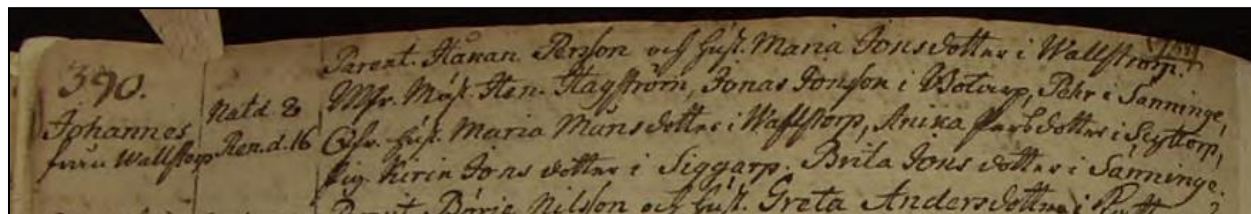 390.
Johannes
från Wallstorp
Natd. 8
Ren. d. 16
Parent. Håkan Persson och Hust. Maria Jonsdotter i Wallstorp.
Mfr. Mást. Hen. Hagström, Jonas Jonson i Botorp, Pehr i Sanninge,
Qfr. Hust. Maria Månsdotter i Wallstorp, Anika dotter i
Pig. Kirin Jonsdotter i Siggarp. Brita Jonsdotter i Sanninge.
Parent. Börje Nilsson och Hust. Greta Andersdotter i